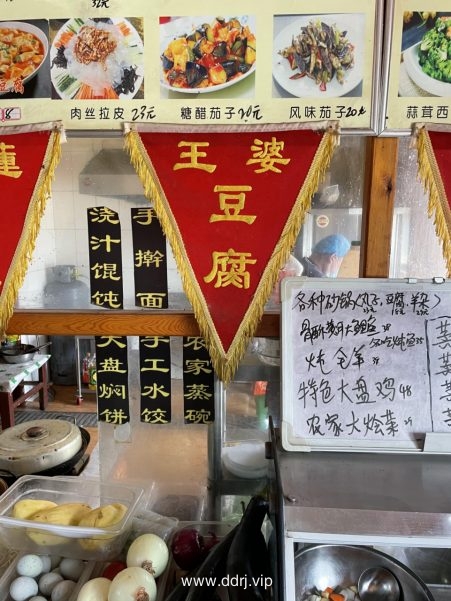 肉丝拉皮 23元
糖醋茄子 20元
风味茄子 20元
蒜茸西
蓮
王 婆
豆
腐
浇汁馄饨
手擀面
大盘焖饼
手工水饺
农家蒸碗
各种砂锅(丸子,豆腐,羊杂)
炖全羊
特色大盘鸡 48
农家大烩菜
www.ddrj.vip